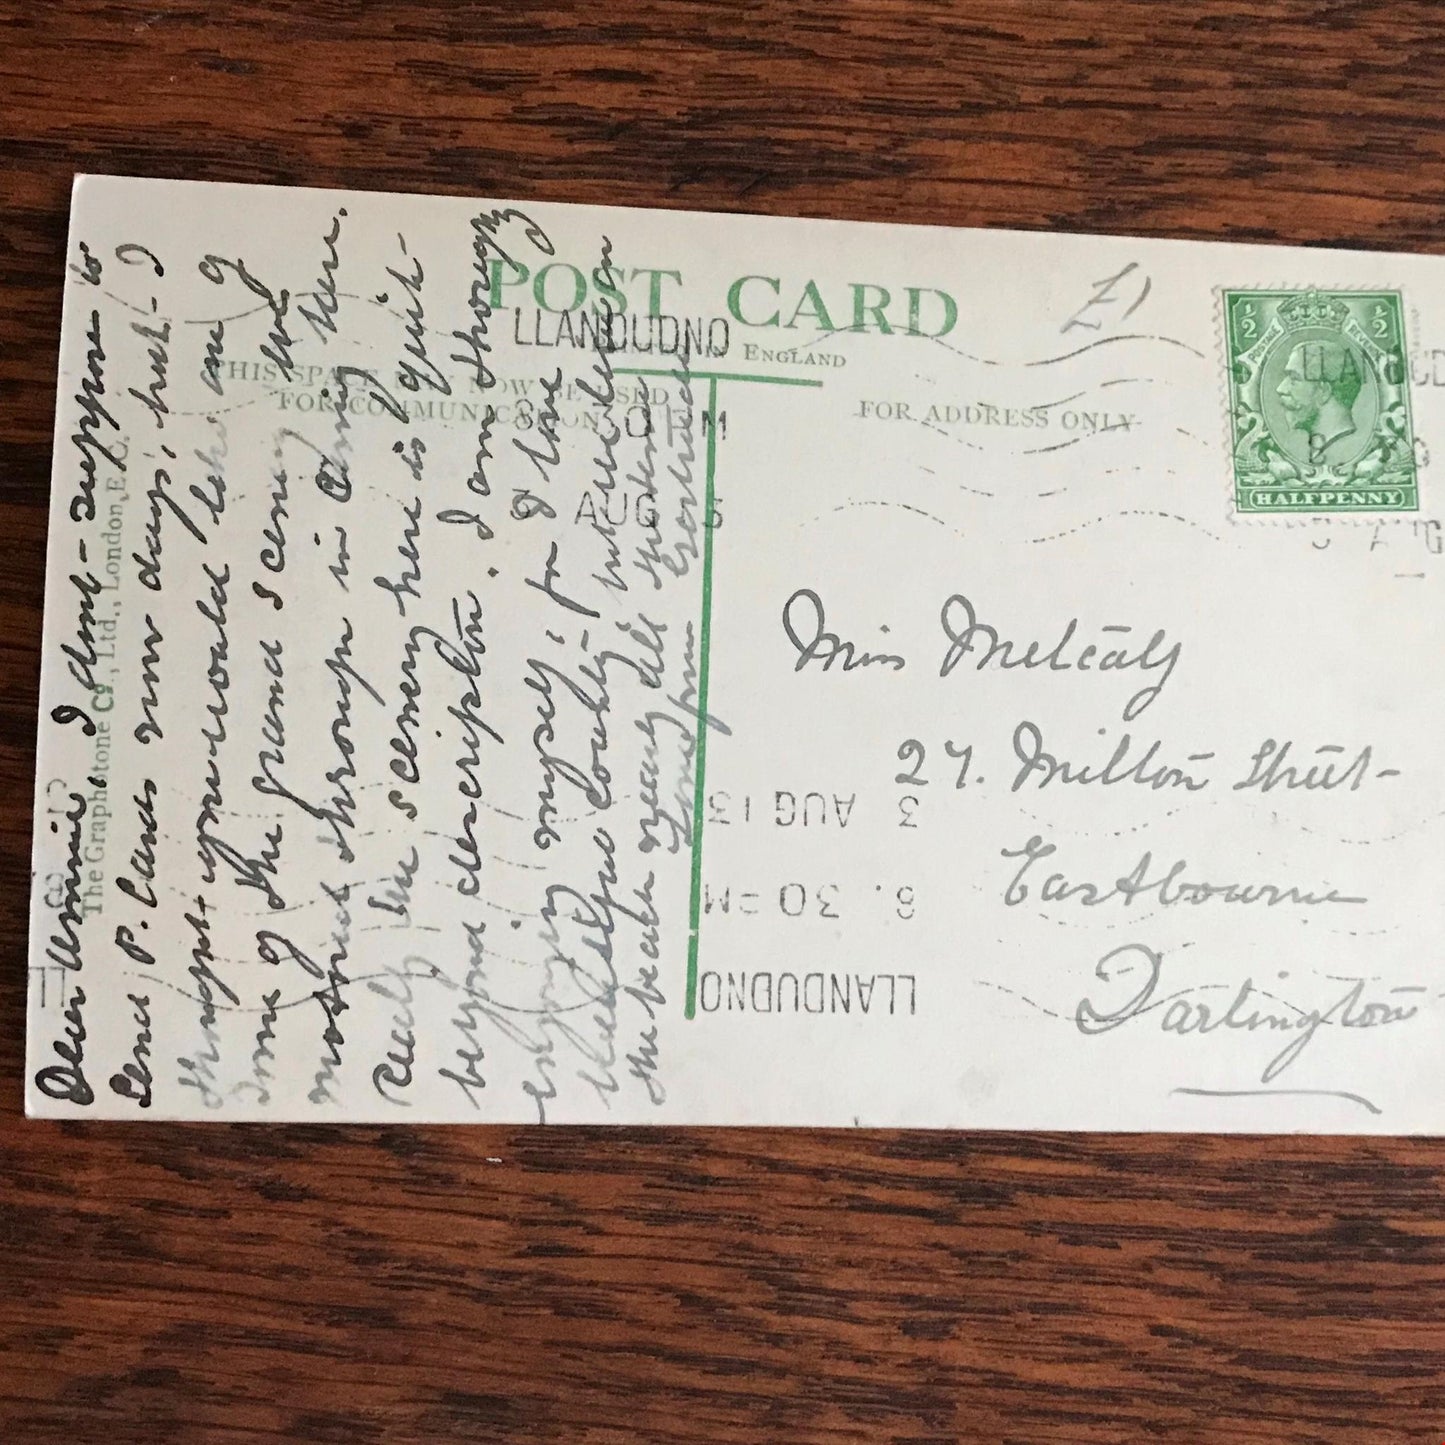 POST CARD
ENGLAND
THIS SPACE MAY NOW BE USED
FOR COMMUNICATION
FOR ADDRESS ONLY
The Graphotone Co., Ltd., London, E.C.
LLANDUDNO
8. 30 PM
AUG
LLANDUDNO
8. 30 PM
3 AUG 13
½ POSTAGE REVENUE ½
HALFPENNY
£1
Dear Annie, I don't suppose to
send P. Cards now days, but I
thought you would like one of
some of the grand scenery we
motored through in coming here.
Really the scenery here is quit
beyond description. I am thoroughly
enjoying myself, for I love
beautiful country, but
the beach nearly all
Love from Gertrude
Miss Metcalf
27. Milton Street
Eastbourne
Darlington